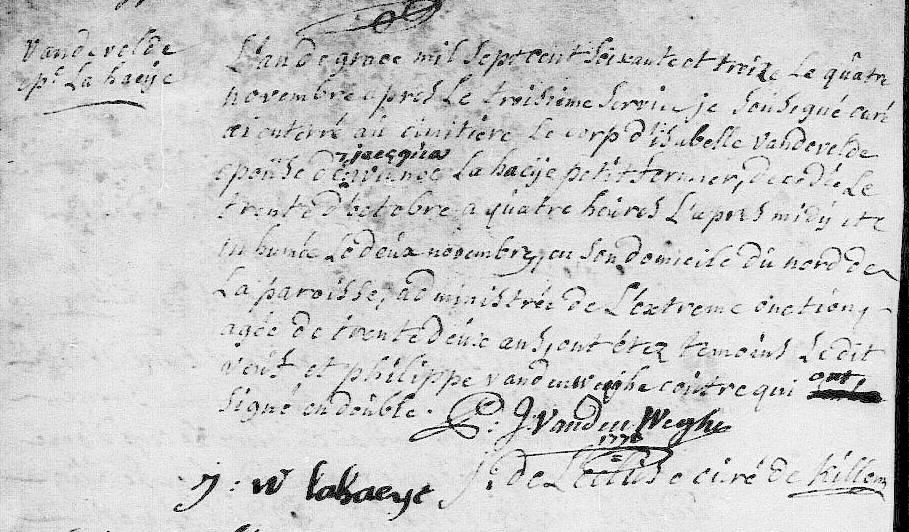 Vandevelde
L'an de grace mil sept cent soixante et treize Le quâtre
novembre apres Le troisieme service je soûsigné curé
ai enterré au cimitiere Le corp d'isabelle vandevelde
jacques
epoûse de Lahaeÿe petit fermier, decedée Le
trente d'octobre a quâtre heûres L'apres midÿ et
inhumée Le deux novembre, en son domicile du nord de
La paroisse, administrée de L'extreme onction,
agée de trente deux ans, ont étez temoins Ledit
veûf et philippe vandenweghe contre qui ont
signé en doûble.
P: J: Vanden Weghe
J: w lahaeye
curé de Killem